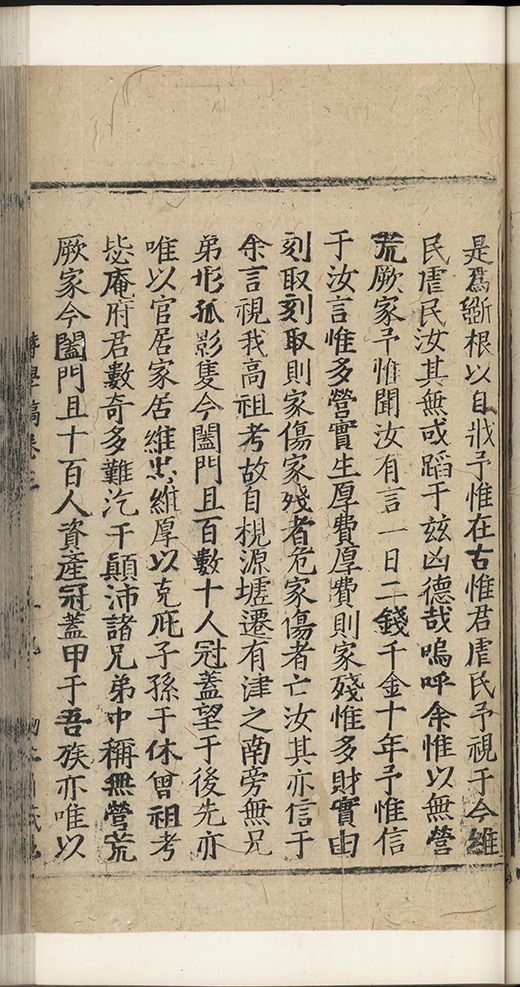 是爲斲根以自戕予惟在古惟君虐民予視于今維
民虐民汝其無或蹈于兹凶德哉嗚呼余惟以無營
荒厥家予惟聞汝有言一日二錢千金十年予惟信
于汝言惟多營實生厚費厚費則家殘惟多財實由
刻取刻取則家傷家殘者危家傷者亡汝其亦信于
余言視我高祖考故自梘源壚遷有津之南旁無兄
弟形孤影隻今闔門且百數十人冠蓋望于後先亦
唯以官居家居維忠維厚以克庇子孫于休曾祖考
毖庵府君數奇多難汔于顛沛諸兄弟中稱無營荒
厥家今闔門且十百人資產冠蓋甲于吾族亦唯以
學稿卷